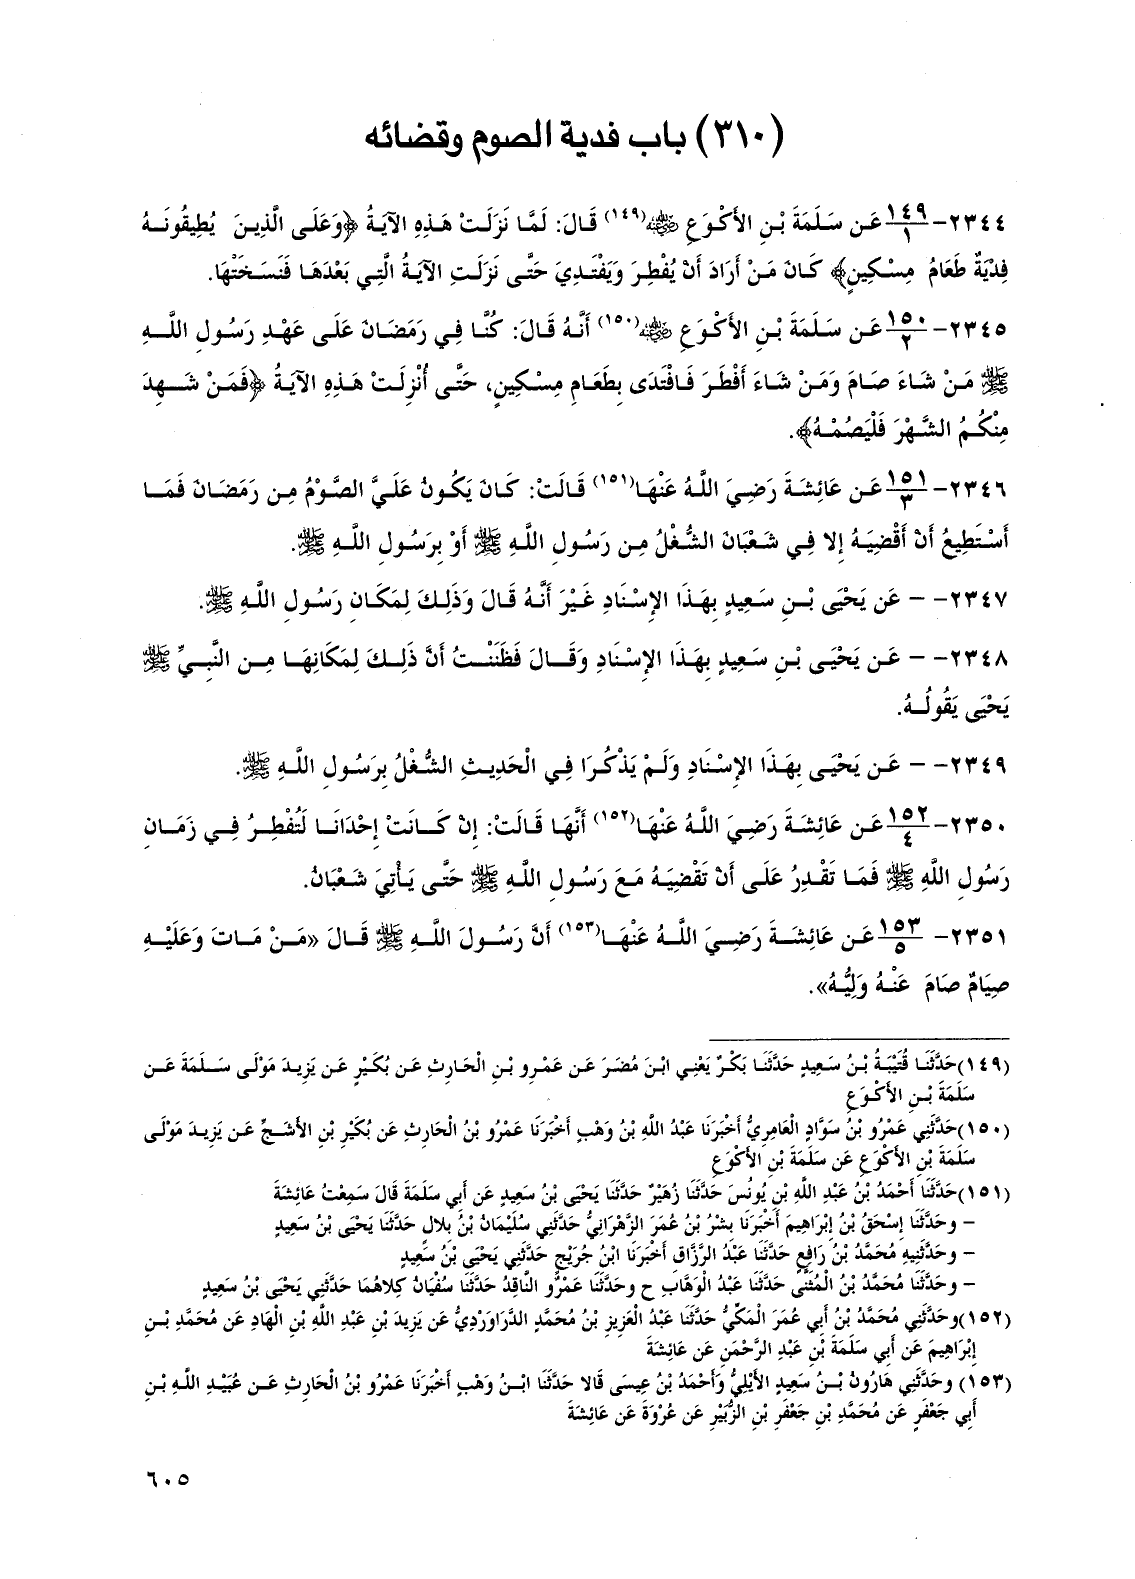 (٣١٠) باب فدية الصوم وقضائه
٢٣٤٤- ١٤٩/١ عَن سَلَمَةَ بْنِ الأَكْوَعِ ﷺ(١٤٩) قَالَ: لَمَّا نَزَلَتْ هَذِهِ الآيَةُ ﴿وَعَلَى الَّذِينَ يُطِيقُونَهُ
فِدْيَةٌ طَعَامُ مِسْكِينٍ﴾ كَانَ مَنْ أَرَادَ أَنْ يُفْطِرَ وَيَفْتَدِيَ حَتَّى نَزَلَتِ الآيَةُ الَّتِي بَعْدَهَا فَنَسَخَتْهَا.
٢٣٤٥- ١٥٠/٢ عَن سَلَمَةَ بْنِ الأَكْوَعِ ﷺ(١٥٠) أَنَّهُ قَالَ: كُنَّا فِي رَمَضَانَ عَلَى عَهْدِ رَسُولِ اللَّهِ
ﷺ مَنْ شَاءَ صَامَ وَمَنْ شَاءَ أَفْطَرَ فَافْتَدَى بِطَعَامِ مِسْكِينٍ، حَتَّى أُنْزِلَتْ هَذِهِ الآيَةُ ﴿فَمَنْ شَهِدَ
مِنْكُمُ الشَّهْرَ فَلْيَصُمْهُ﴾.
٢٣٤٦- ١٥١/٣ عَن عَائِشَةَ رَضِيَ اللَّهُ عَنْهَا(١٥١) قَالَتْ: كَانَ يَكُونُ عَلَيَّ الصَّوْمُ مِن رَمَضَانَ فَمَا
أَسْتَطِيعُ أَنْ أَقْضِيَهُ إِلا فِي شَعْبَانَ الشُّغْلُ مِن رَسُولِ اللَّهِ ﷺ أَوْ بِرَسُولِ اللَّهِ ﷺ.
٢٣٤٧- – عَن يَحْيَى بْنِ سَعِيدٍ بِهَذَا الإِسْنَادِ غَيْرَ أَنَّهُ قَالَ وَذَلِكَ لِمَكَانِ رَسُولِ اللَّهِ ﷺ.
٢٣٤٨- – عَن يَحْيَى بْنِ سَعِيدٍ بِهَذَا الإِسْنَادِ وَقَالَ فَظَنَنْتُ أَنَّ ذَلِكَ لِمَكَانِهَا مِن النَّبِيِّ ﷺ
يَحْيَى يَقُولُهُ.
٢٣٤٩- – عَن يَحْيَى بِهَذَا الإِسْنَادِ وَلَمْ يَذْكُرَا فِي الْحَدِيثِ الشُّغْلُ بِرَسُولِ اللَّهِ ﷺ.
٢٣٥٠- ١٥٢/٤ عَن عَائِشَةَ رَضِيَ اللَّهُ عَنْهَا(١٥٢) أَنَّهَا قَالَتْ: إِنْ كَانَتْ إِحْدَانَا لَتُفْطِرُ فِي زَمَانِ
رَسُولِ اللَّهِ ﷺ فَمَا تَقْدِرُ عَلَى أَنْ تَقْضِيَهُ مَعَ رَسُولِ اللَّهِ ﷺ حَتَّى يَأْتِيَ شَعْبَانُ.
٢٣٥١- ١٥٣/٥ عَن عَائِشَةَ رَضِيَ اللَّهُ عَنْهَا(١٥٣) أَنَّ رَسُولَ اللَّهِ ﷺ قَالَ «مَنْ مَاتَ وَعَلَيْهِ
صِيَامٌ صَامَ عَنْهُ وَلِيُّهُ».
(١٤٩)حَدَّثَنَا قُتَيْبَةُ بْنُ سَعِيدٍ حَدَّثَنَا بَكْرٌ يَعْنِي ابْنَ مُضَرَ عَن عَمْرِو بْنِ الْحَارِثِ عَن بُكَيْرٍ عَن يَزِيدَ مَوْلَى سَلَمَةَ عَن
سَلَمَةَ بْنِ الأَكْوَعِ
(١٥٠)حَدَّثَنِي عَمْرُو بْنُ سَوَّادٍ الْعَامِرِيُّ أَخْبَرَنَا عَبْدُ اللَّهِ بْنُ وَهْبٍ أَخْبَرَنَا عَمْرُو بْنُ الْحَارِثِ عَن بُكَيْرِ بْنِ الأَشَجِّ عَن يَزِيدَ مَوْلَى
سَلَمَةَ بْنِ الأَكْوَعِ عَن سَلَمَةَ بْنِ الأَكْوَعِ
(١٥١)حَدَّثَنَا أَحْمَدُ بْنُ عَبْدِ اللَّهِ بْنِ يُونُسَ حَدَّثَنَا زُهَيْرٌ حَدَّثَنَا يَحْيَى بْنُ سَعِيدٍ عَن أَبِي سَلَمَةَ قَالَ سَمِعْتُ عَائِشَةَ
– وحَدَّثَنَا إِسْحَقُ بْنُ إِبْرَاهِيمَ أَخْبَرَنَا بِشْرُ بْنُ عُمَرَ الزَّهْرَانِيُّ حَدَّثَنِي سُلَيْمَانُ بْنُ بِلالٍ حَدَّثَنَا يَحْيَى بْنُ سَعِيدٍ
– وحَدَّثَنِيهِ مُحَمَّدُ بْنُ رَافِعٍ حَدَّثَنَا عَبْدُ الرَّزَّاقِ أَخْبَرَنَا ابْنُ جُرَيْجٍ حَدَّثَنِي يَحْيَى بْنُ سَعِيدٍ
– وحَدَّثَنَا مُحَمَّدُ بْنُ الْمُثَنَّى حَدَّثَنَا عَبْدُ الْوَهَّابِ ح وحَدَّثَنَا عَمْرٌو النَّاقِدُ حَدَّثَنَا سُفْيَانُ كِلاهُمَا حَدَّثَنِي يَحْيَى بْنُ سَعِيدٍ
(١٥٢)وحَدَّثَنِي مُحَمَّدُ بْنُ أَبِي عُمَرَ الْمَكِّيُّ حَدَّثَنَا عَبْدُ الْعَزِيزِ بْنُ مُحَمَّدٍ الدَّرَاوَرْدِيُّ عَن يَزِيدَ بْنِ عَبْدِ اللَّهِ بْنِ الْهَادِ عَن مُحَمَّدِ بْنِ
إِبْرَاهِيمَ عَن أَبِي سَلَمَةَ بْنِ عَبْدِ الرَّحْمَنِ عَن عَائِشَةَ
(١٥٣) وحَدَّثَنِي هَارُونُ بْنُ سَعِيدٍ الأَيْلِيُّ وَأَحْمَدُ بْنُ عِيسَى قَالا حَدَّثَنَا ابْنُ وَهْبٍ أَخْبَرَنَا عَمْرُو بْنُ الْحَارِثِ عَن عُبَيْدِ اللَّهِ بْنِ
أَبِي جَعْفَرٍ عَن مُحَمَّدِ بْنِ جَعْفَرِ بْنِ الزُّبَيْرِ عَن عُرْوَةَ عَن عَائِشَةَ
٦٠٥